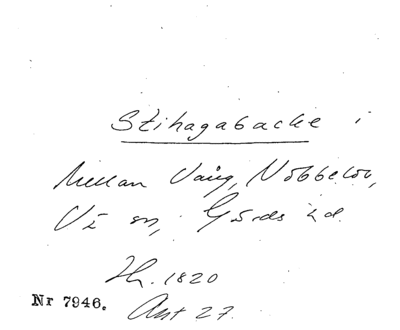 Stihagabacke i
Mellan Vång, Nöbbelöv,
V i sn, Gärds hd.
Hr. 1820
Nr 7946. Akt 27